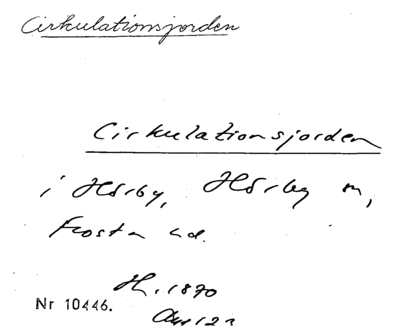 Cirkulationsjorden
Cirkulationsjorden
i Hörby, Hörby sn,
Frosta hd.
H. 1870
Nr 10446.